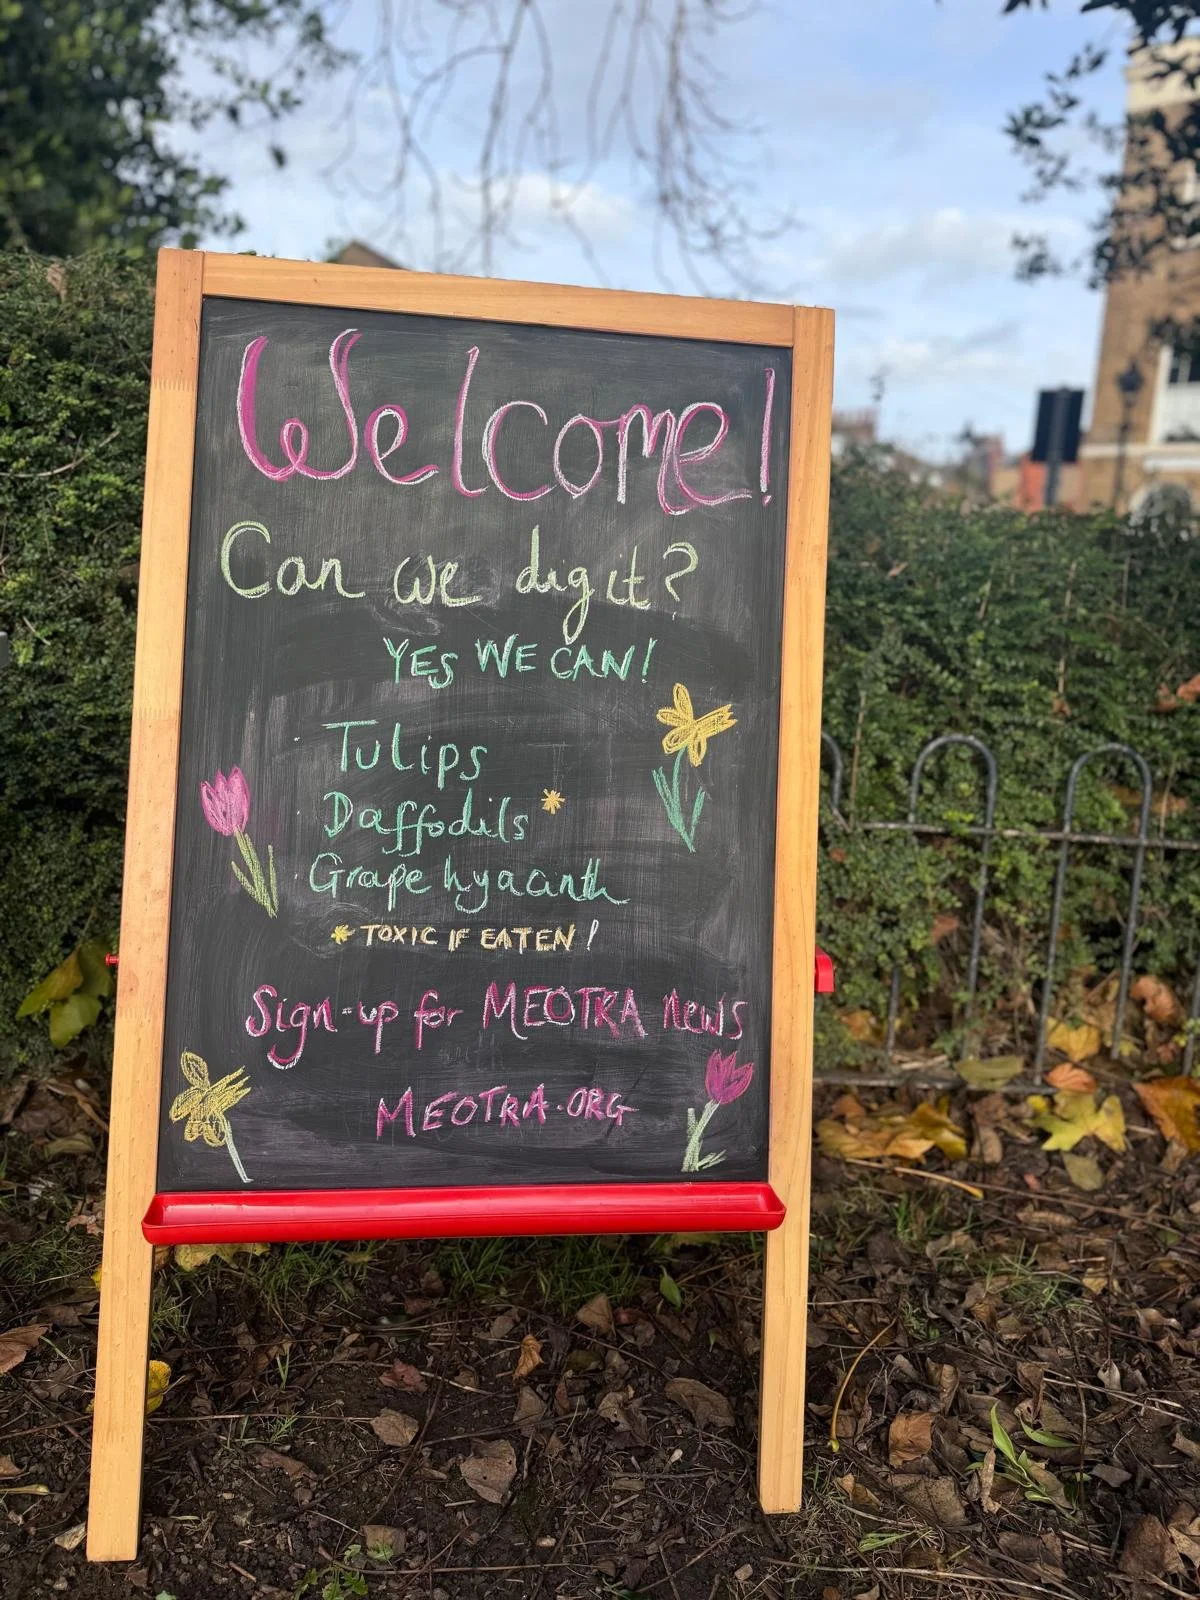 Welcome!
Can we dig it?
YES WE CAN!
Tulips
Daffodils *
Grape hyacinth
* TOXIC IF EATEN!
Sign-up for MEOTRA news
MEOTRA.ORG